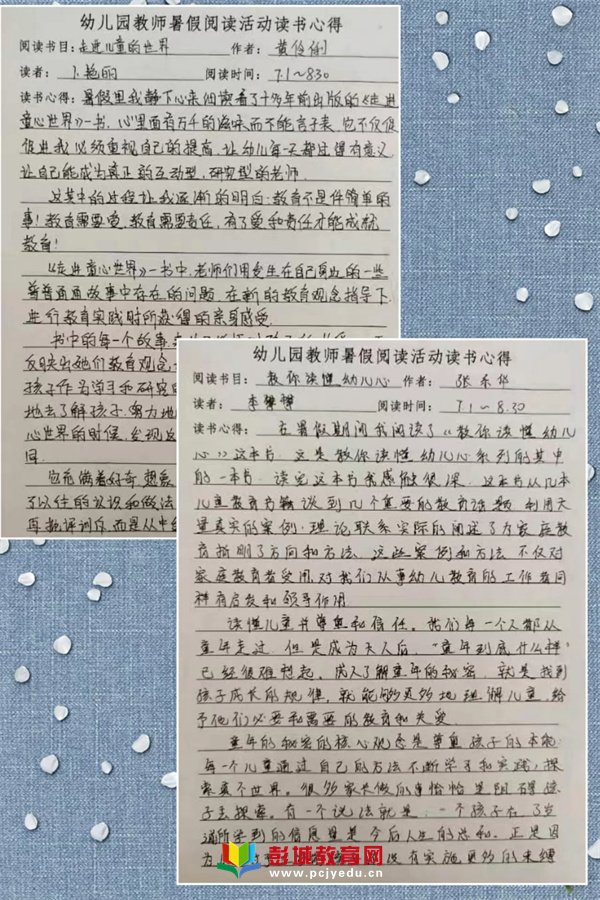 幼儿园教师暑假阅读活动读书心得
阅读书目：走进儿童的世界 作者：黄俊俐
读者：卜艳丽 阅读时间：7.1～8.30
读书心得：暑假里我静下心来细读看了十多年前出版的《走进
童心世界》一书，心里面有万千的滋味而不能言表，它不仅促
促进我必须重视自己的提高，让幼儿每一天都过得有意义，
让自己能成为真正的互动型，研究型的老师。
这其中的过程让我逐渐的明白：教育不是件简单的
事！教育需要爱，教育需要责任，有了爱和责任才能成就
教育！
《走进童心世界》一书中，老师们用发生在自己身边的一些
普普通通故事中存在的问题，在新的教育观念指导下
进行教育实践时所获得的亲身感受。
书中的每一个故事
反映出她们教育观念
孩子作为学习和研究
地去了解孩子，努力地
心世界的时候，发现
同。
它充满着好奇，想象
了以往的认识和做法
再批评训斥，而是从中
幼儿园教师暑假阅读活动读书心得
阅读书目：教你读懂幼儿心 作者：张东华
读者：李馨馨 阅读时间：7.1～8.30
读书心得：在暑假期间我阅读了《教你读懂幼儿
心》这本书，这是教你读懂幼儿心系列的其中
的一本书。读完这本书我感触很深，这本书从几本
儿童教育书籍谈到几个重要的教育话题，利用大
量真实的案例，理论联系实际的阐述了为家庭教
育指明了方向和方法，这些案例和方法不仅对
家庭教育者受用，对我们从事幼儿教育的工作者同
样有启发和领导作用。
读懂儿童并尊重和信任。我们每一个人都从
童年走过，但是成为大人后，“童年到底什么样”
已经很难想起。成人了解童年的秘密，就是找到
孩子成长的规律，就能够更多地理解儿童，给
予他们必要和需要的教育和关爱。
童年的秘密的核心观念是尊重孩子的本能，
每一个儿童通过自己的方法不断学习和实践，探
索整个世界。很多家长做的事恰恰是阻碍孩
子去探索。有一个说法就是，一个孩子在7岁
前所学到的信息量是今后人生的总和。正是因
为 没有实施更多的束缚
彭城教育网
www.pcjyedu.cn